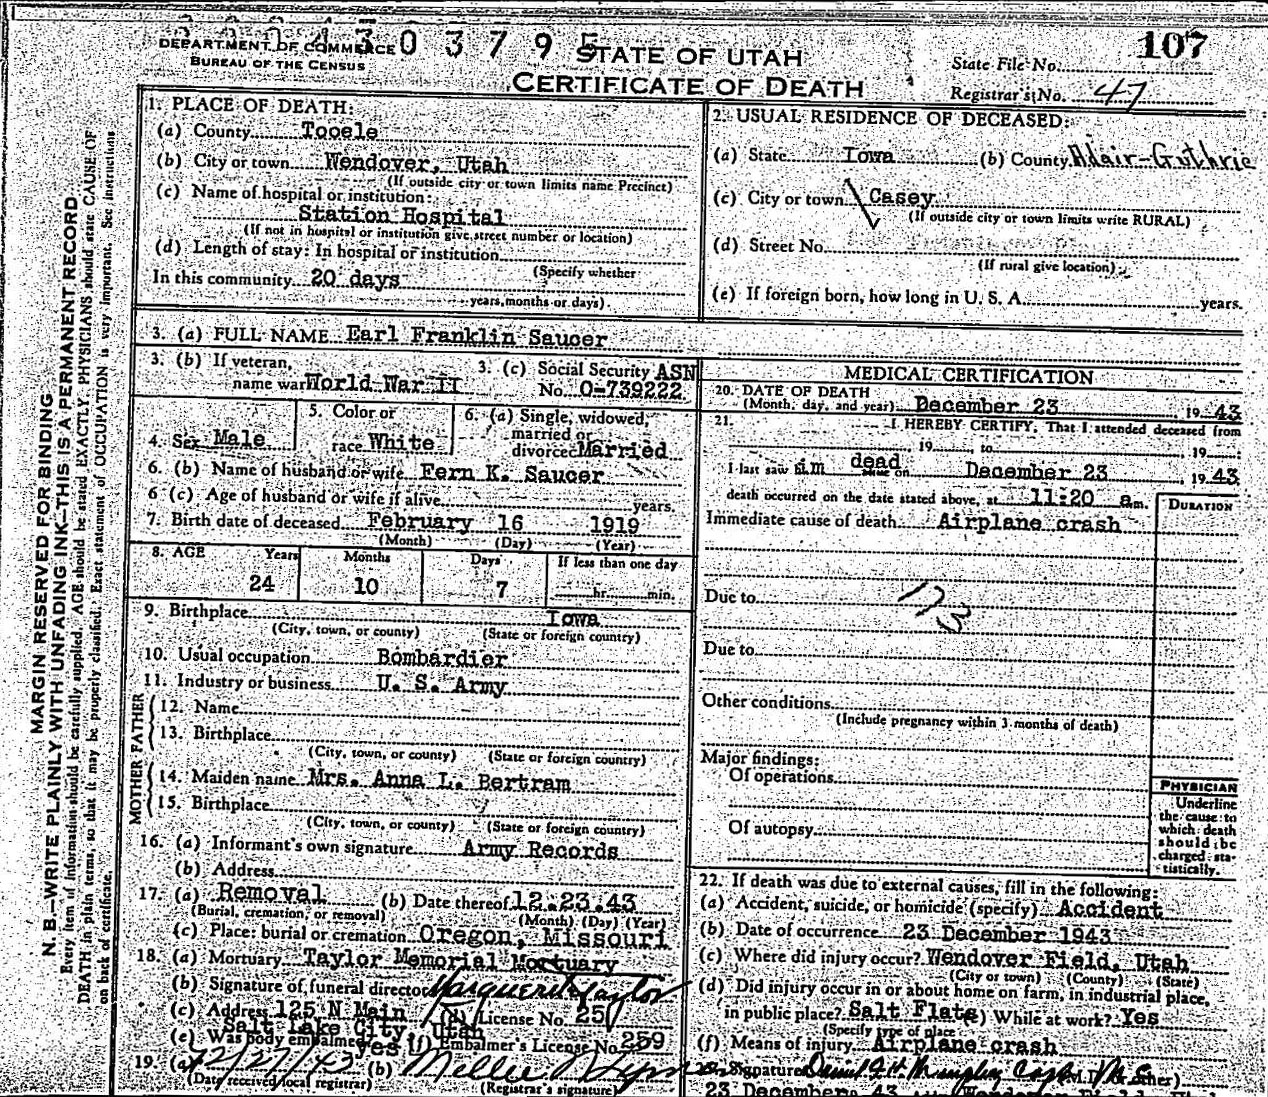 DEPARTMENT OF COMMERCE
BUREAU OF THE CENSUS
0 4 3 0 3 7 9 5
STATE OF UTAH
CERTIFICATE OF DEATH
107
State File No.
Registrar's No. 47
MARGIN RESERVED FOR BINDING
N. B.—WRITE PLAINLY WITH UNFADING INK—THIS IS A PERMANENT RECORD
Every item of information should be carefully supplied. AGE should be stated EXACTLY. PHYSICIANS should state CAUSE OF
DEATH in plain terms, so that it may be properly classified. Exact statement of OCCUPATION is very important. See instructions
on back of certificate.
1. PLACE OF DEATH:
(a) County Tooele
(b) City or town Wendover, Utah
(If outside city or town limits name Precinct)
(c) Name of hospital or institution:
Station Hospital
(If not in hospital or institution give street number or location)
(d) Length of stay: In hospital or institution
(Specify whether
In this community 20 days
years, months or days)
2. USUAL RESIDENCE OF DECEASED:
(a) State Iowa (b) County Adair-Guthrie
(c) City or town Casey
(If outside city or town limits write RURAL)
(d) Street No.
(If rural give location)
(e) If foreign born, how long in U. S. A. years.
3. (a) FULL NAME Earl Franklin Saucer
3. (b) If veteran, name war World War II
3. (c) Social Security ASN
No. O-739222
4. Sex Male
5. Color or race White
6. (a) Single, widowed, married or divorced Married
6. (b) Name of husband or wife Fern K. Saucer
6 (c) Age of husband or wife if alive years.
7. Birth date of deceased February 16 1919
(Month) (Day) (Year)
8. AGE Years Months Days If less than one day
24 10 7 hr. min.
9. Birthplace Iowa
(City, town, or county) (State or foreign country)
10. Usual occupation Bombardier
11. Industry or business U. S. Army
FATHER
12. Name
13. Birthplace
(City, town, or county) (State or foreign country)
MOTHER
14. Maiden name Mrs. Anna L. Bertram
15. Birthplace
(City, town, or county) (State or foreign country)
16. (a) Informant's own signature Army Records
(b) Address
17. (a) Removal (b) Date thereof 12.23.43
(Burial, cremation, or removal) (Month) (Day) (Year)
(c) Place: burial or cremation Oregon, Missouri
18. (a) Mortuary Taylor Memorial Mortuary
(b) Signature of funeral director Marguerite Taylor
(c) Address 125 N Main (d) License No. 25
Salt Lake City, Utah
(e) Was body embalmed? yes (f) Embalmer's License No. 259
19. (a) 12/27/43 (b) Mellie
(Date received local registrar) (Registrar's signature)
MEDICAL CERTIFICATION
20. DATE OF DEATH
(Month, day, and year) December 23, 19 43
21. I HEREBY CERTIFY, That I attended deceased from
19 , to , 19 :
I last saw him dead on December 23, 19 43
death occurred on the date stated above, at 11:20 a m.
DURATION
Immediate cause of death Airplane crash
Due to 173
Due to
Other conditions
(Include pregnancy within 3 months of death)
Major findings:
Of operations
Of autopsy
PHYSICIAN
Underline
the cause to
which death
should be
charged sta-
tistically.
22. If death was due to external causes, fill in the following:
(a) Accident, suicide, or homicide (specify) Accident
(b) Date of occurrence 23 December 1943
(c) Where did injury occur? Wendover Field, Utah
(City or town) (County) (State)
(d) Did injury occur in or about home on farm, in industrial place,
in public place? Salt Flats (e) While at work? Yes
(Specify type of place
(f) Means of injury Airplane crash
Signature Daniel
23 December 43